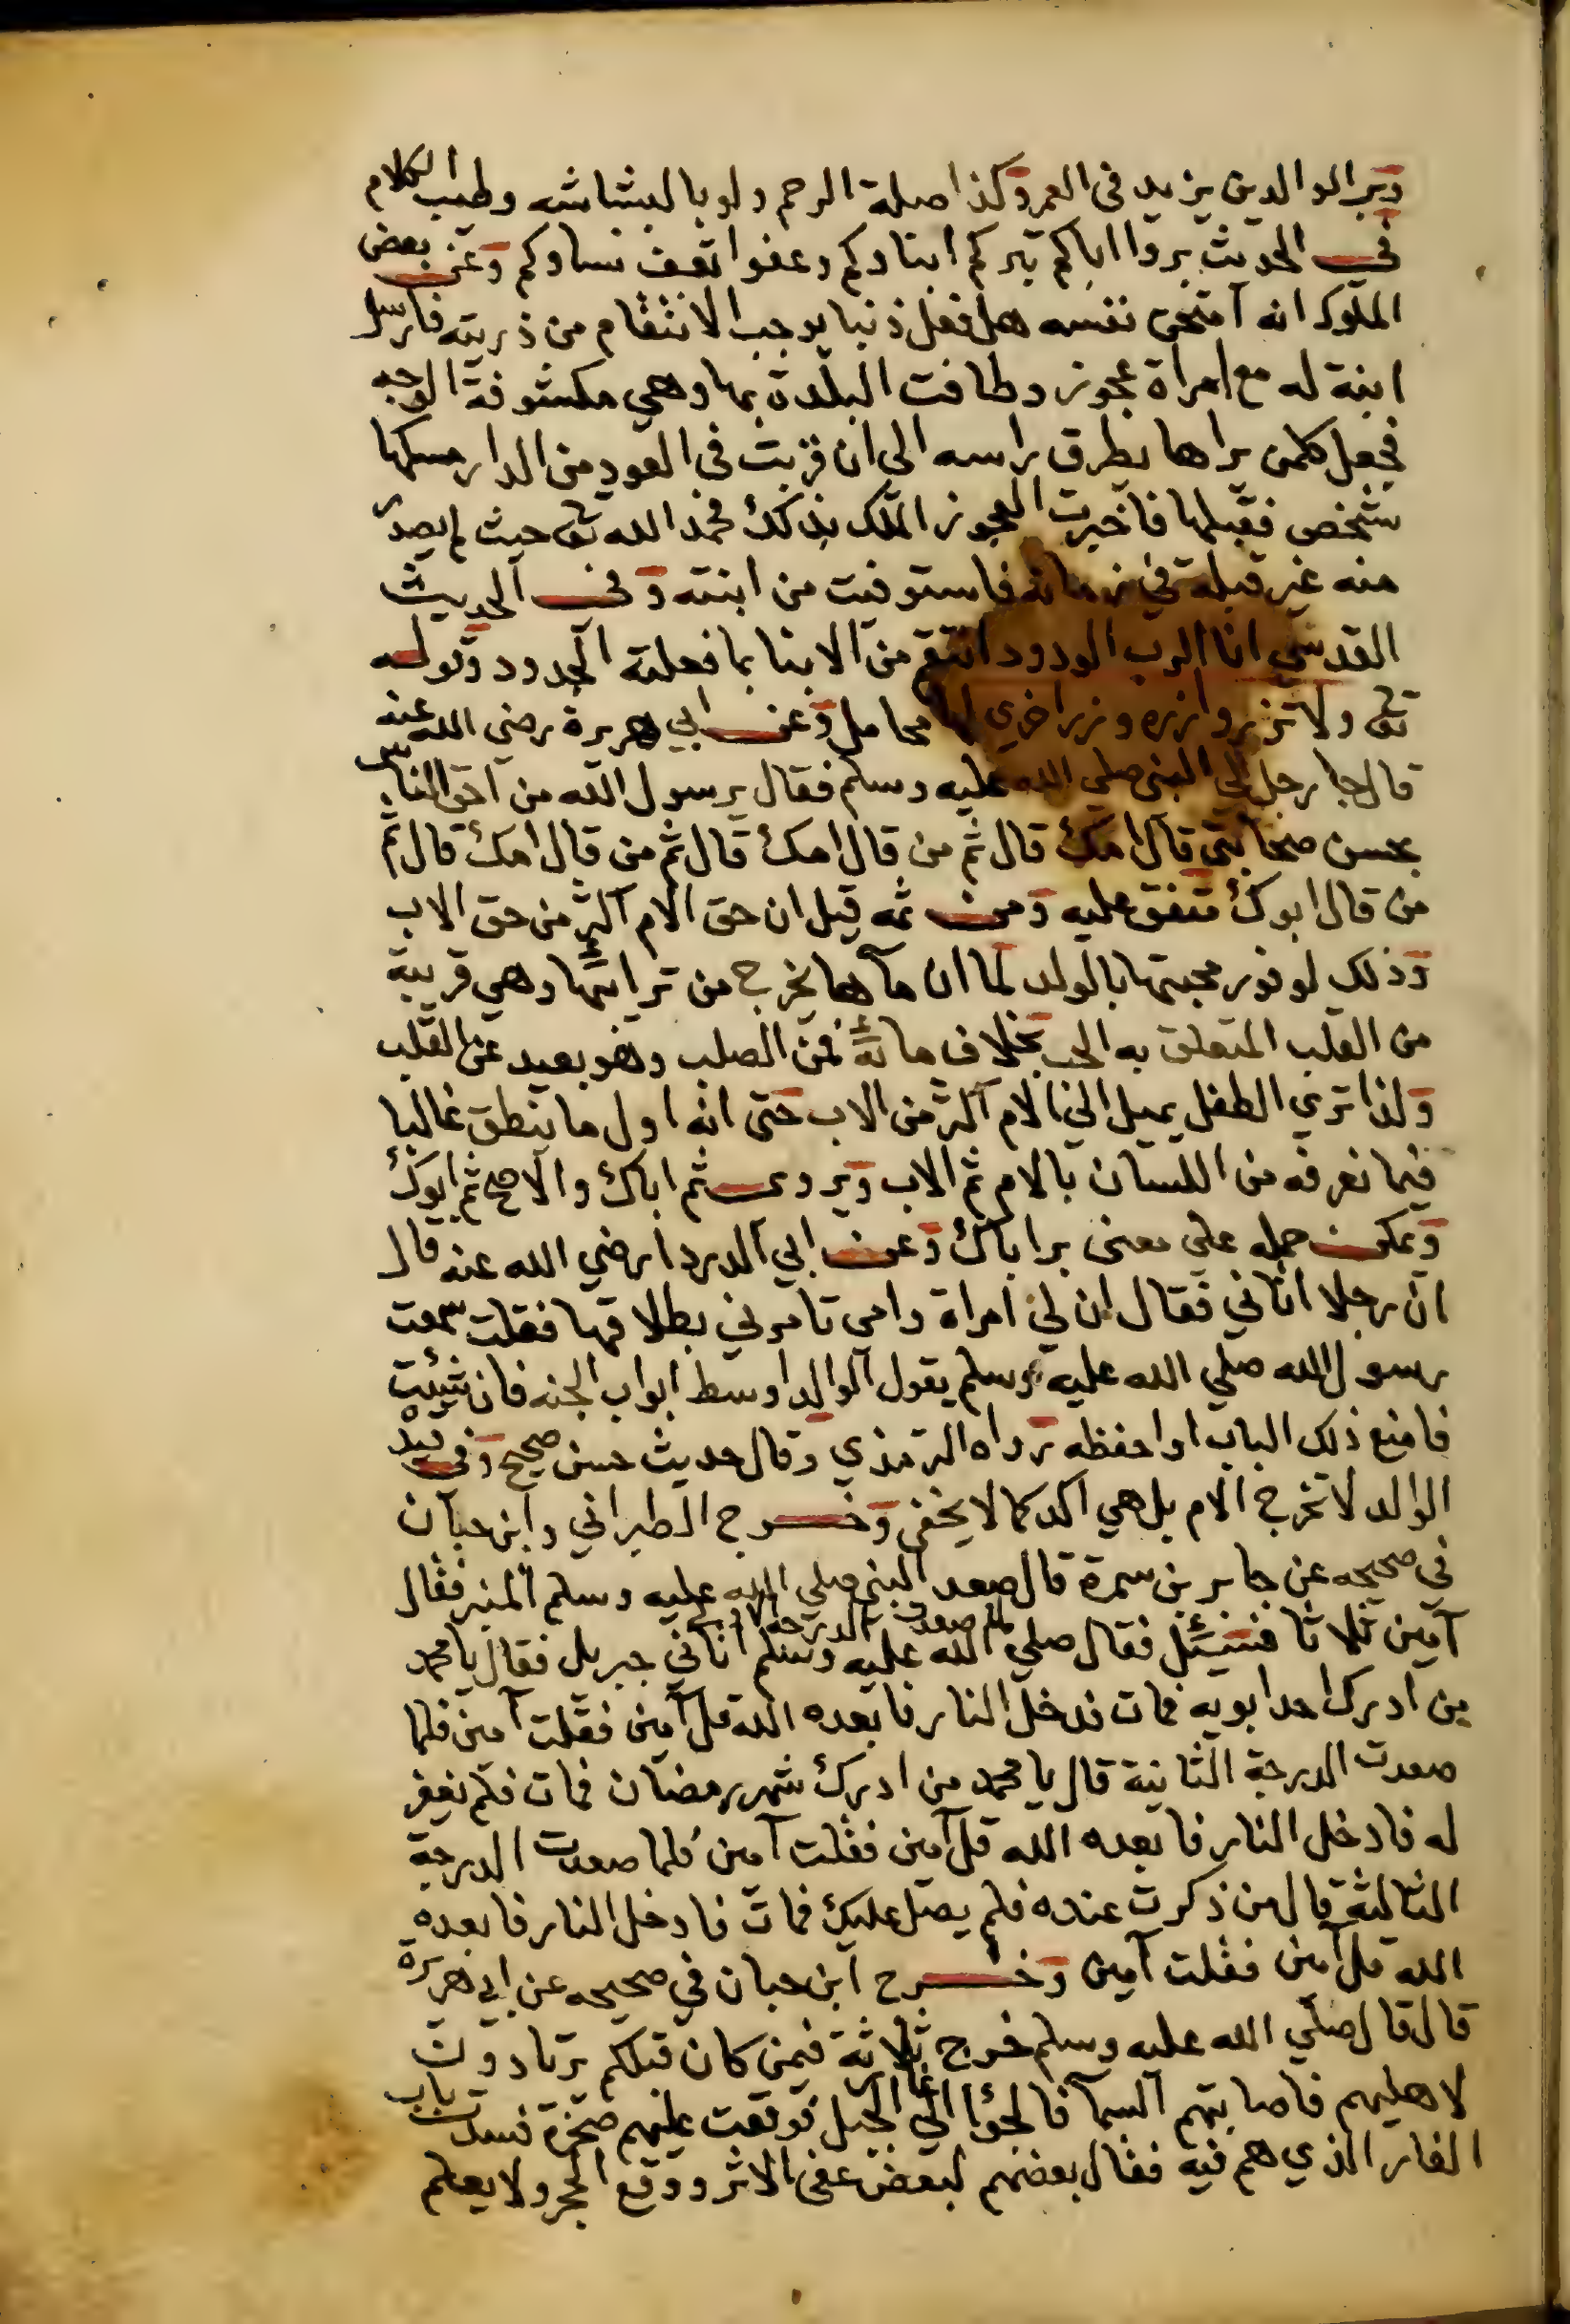 وبر الوالدين يزيد في العمر وكذا صلة الرحم ولو بالبشاشه وطيب الكلام
في الحديث بروا اباكم تبركم ابناوكم وعفوا تعف نساوكم وعن بعض
الملوك انه امتحن نفسه هل فعل ذنبا يوجب الانتقام من ذريته فارسل
ابنة له مع امراة عجوز وطافت البلدة بها وهي مكشوفة الوجه
فجعل كلمن يراها يطرق راسه الى ان قربت في العود من الدار مسكها
شخص فقبلها فاخبرت العجوز الملك بذلك فحمد الله تع حيث لم يصدر
منه غير قبلة في زمانه فاستوفيت من ابنته وفي الحديث
القدسي انا الرب الودود انتقم من الابنا بما فعلته الجدود وقوله
تع ولا تزر وازره وزر اخري لها محامل وعن ابي هريرة رضي الله عنه
قال جا رجل الي النبي صلي الله عليه وسلم فقال يرسول الله من احق الناس
بحسن صحابتي قال امك قال ثم من قال امك قال ثم من قال امك قال ثم
من قال ابوك متفق عليه ومن ثمه قيل ان حق الام اكثر من حق الاب
وذلك لوفور محبتها بالولد لما ان مآها يخرج من ترائبها وهي قريبة
من القلب المتعلق به الحب بخلاف مائه فمن الصلب وهو بعيد عن القلب
ولذا تري الطفل يميل الي الام اكثر من الاب حتى انه اول ما ينطق غالبا
فيما نعرفه من اللسان بالام ثم الاب ويروى ثم اباك والاصح ثم ابوك
ويمكن حمله علي معنى بر اباك وعن ابي الدردا رضي الله عنه قال
ان رجلا اتاني فقال ان لي امراة وامي تامرني بطلاقها فقلت سمعت
رسول الله صلي الله عليه وسلم يقول الوالد اوسط ابواب الجنه فان شيئت
فامنع ذلك الباب او احفظه رواه الترمذي وقال حديث حسن صحيح وفي قيد
الوالد لا تخرج الام بل هي اكد كما لا يخفى وخرج الطبراني وابن حبان
في صحيحه عن جابر بن سمرة قال صعد النبي صلي الله عليه وسلم المنبر فقال
لما صعدت الدرجة الاولى
آمين ثلاثا فسئيل فقال صلي الله عليه وسلم اتاني جبريل فقال يا محمد
من ادرك احد ابويه فمات فدخل النار فابعده الله قل آمين فقلت آمين فلما
صعدت الدرجة الثانية قال يا محمد من ادرك شهر رمضان فمات فلم يغفر
له فادخل النار فابعده الله قل آمين فقلت آمين فلما صعدت الدرجة
الثالثة قال من ذكرت عنده فلم يصل عليك فمات فادخل النار فابعده
الله قل آمين فقلت آمين وخرج ابن حبان في صحيحه عن ابي هريرة
قال قال صلي الله عليه وسلم خرج ثلاثة فيمن كان قبلكم يرتادون
لاهليهم فاصابتهم السما فالجؤا الي الجبل فوقعت عليهم صخرة فسدت باب
الغار الذي هم فيه فقال بعضهم لبعض عفى الاثر ووقع الحجر ولا يعلم